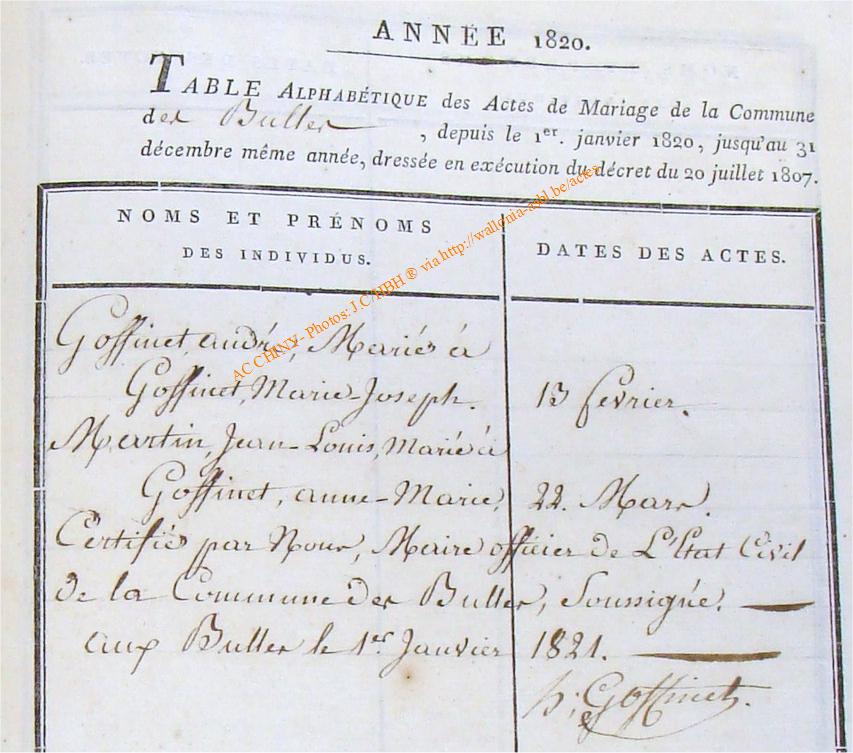 ANNÉE 1820.
TABLE ALPHABÉTIQUE des Actes de Mariage de la Commune
des Bulles, depuis le 1er. janvier 1820, jusqu'au 31
décembre même année, dressée en exécution du décret du 20 juillet 1807.
NOMS ET PRÉNOMS
DES INDIVIDUS.
DATES DES ACTES.
Goffinet, andré, Mariés à
Goffinet, Marie-Joseph. 13 fevrier.
Martin, Jean-Louis, Marié à
Goffinet, anne-Marie, 22. Mars.
Certifiés par Nous, Maire officier de L'Etat Civil
de la Commune des Bulles, Soussigné.
aux Bulles le 1er Janvier 1821.
h; Goffinet.
ACCHINY- Photos: J.C/HBH ® via http://wallonia-asbl.be/actes